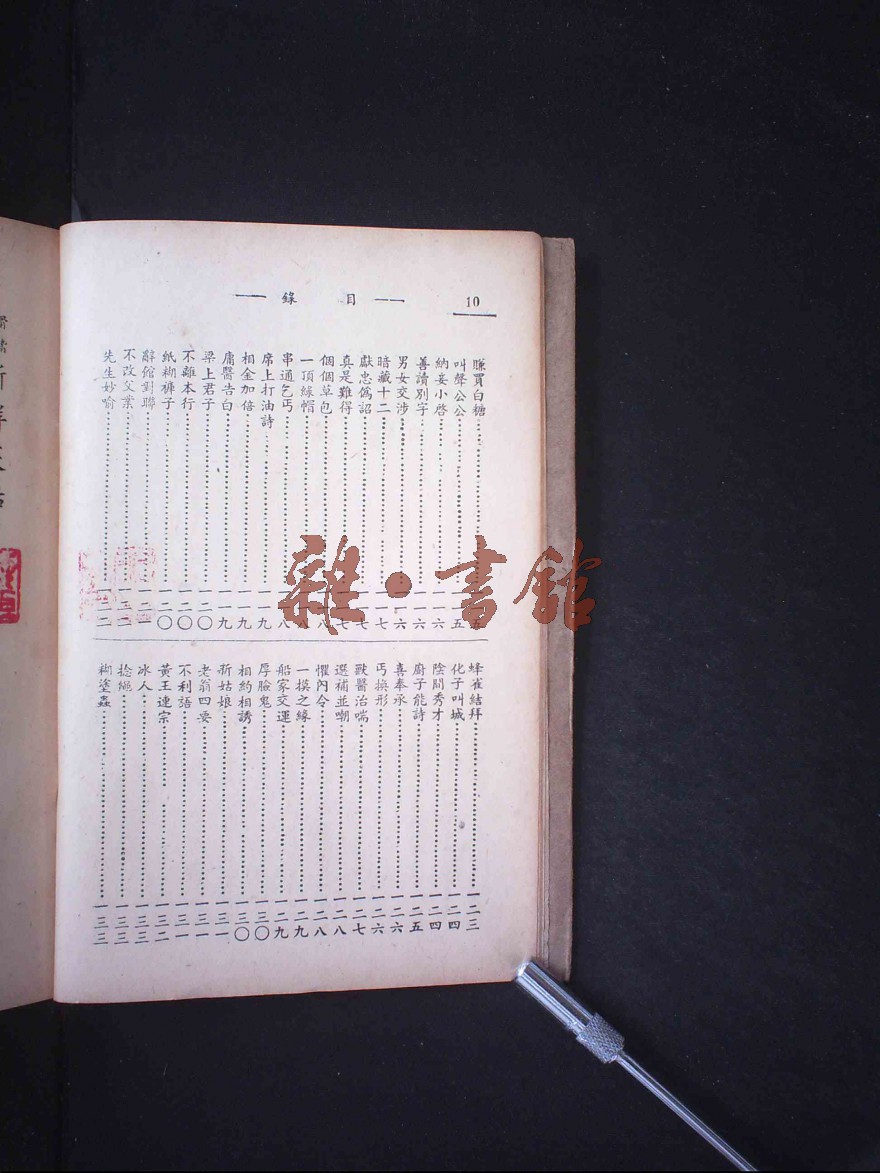 10
目錄
賺買白糖……一一五
叫聲公公……一一五
納妾小啓……一一六
善讀別字……一一六
男女交涉……一一六
暗藏十二……一一七
獻忠僞詔……一一七
真是難得……一一七
個個草包……一一八
一頂綠帽……一一八
串通乞丐……一一八
席上打油詩……一一九
相金加倍……一一九
庸醫告白……一一九
梁上君子……一二〇
不離本行……一二〇
紙糊褲子……一二〇
辭館對聯……一二一
不改父業……一二二
先生妙喻……一二二
蜂雀結拜……一二三
化子叫城……一二四
陰間秀才……一二四
廚子能詩……一二五
喜奉承……一二六
丐換形……一二六
獸醫治喘……一二七
選補並嘲……一二八
懼內令……一二八
一摸之緣……一二九
船家交運……一二九
厚臉鬼……一三〇
相約相誘……一三〇
新姑娘……一三一
老翁四要……一三一
不利語……一三一
黃王連宗……一三二
冰人……一三三
捻繩……一三三
糊塗蟲……一三三
雜·書館